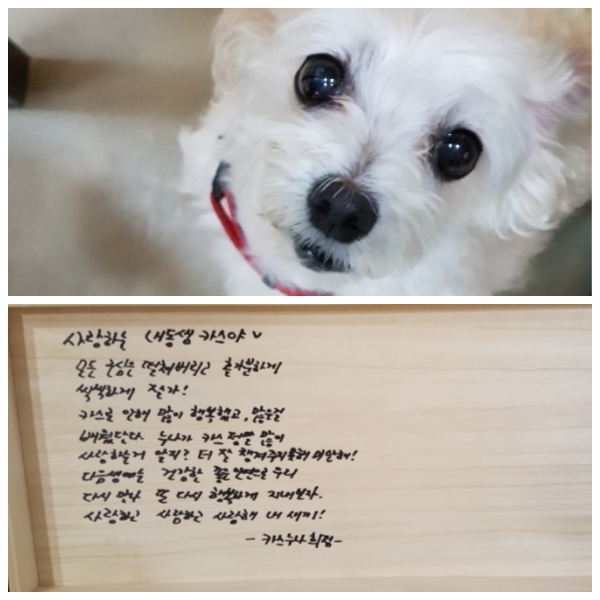 사랑하는 내동생 카스야
모든 근심은 떨쳐버리고 홀가분하게
씩씩하게 잘가!
카스로 인해 많이 행복했고, 많은걸
배웠단다 누나가 카스 정말 많이
사랑하는거 알지? 더 잘 챙겨주지못해 미안해!
다음생에는 건강한 좋은인연으로 우리
다시 만나 또 다시 행복하게 지내보자.
사랑하고 사랑하고 사랑해 내 새끼!
- 카스누나 희정-